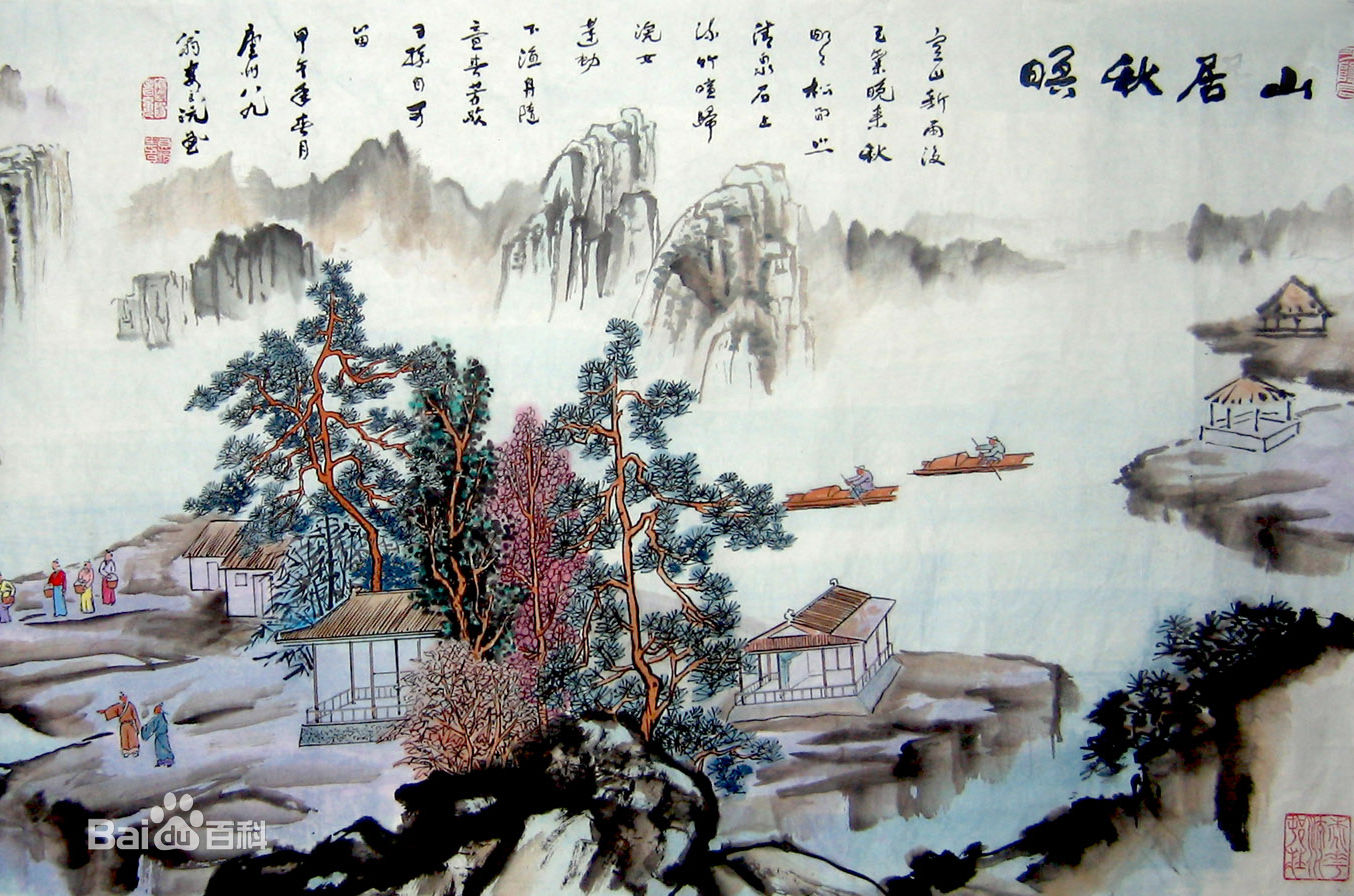 山居秋暝
空山新雨後
天氣晚来秋
明月松间照
清泉石上
流竹喧歸
浣女
莲动
下渔舟隨
意春芳歇
王孫自可
留
甲午年春月
虔州八九
翁
Bai百科